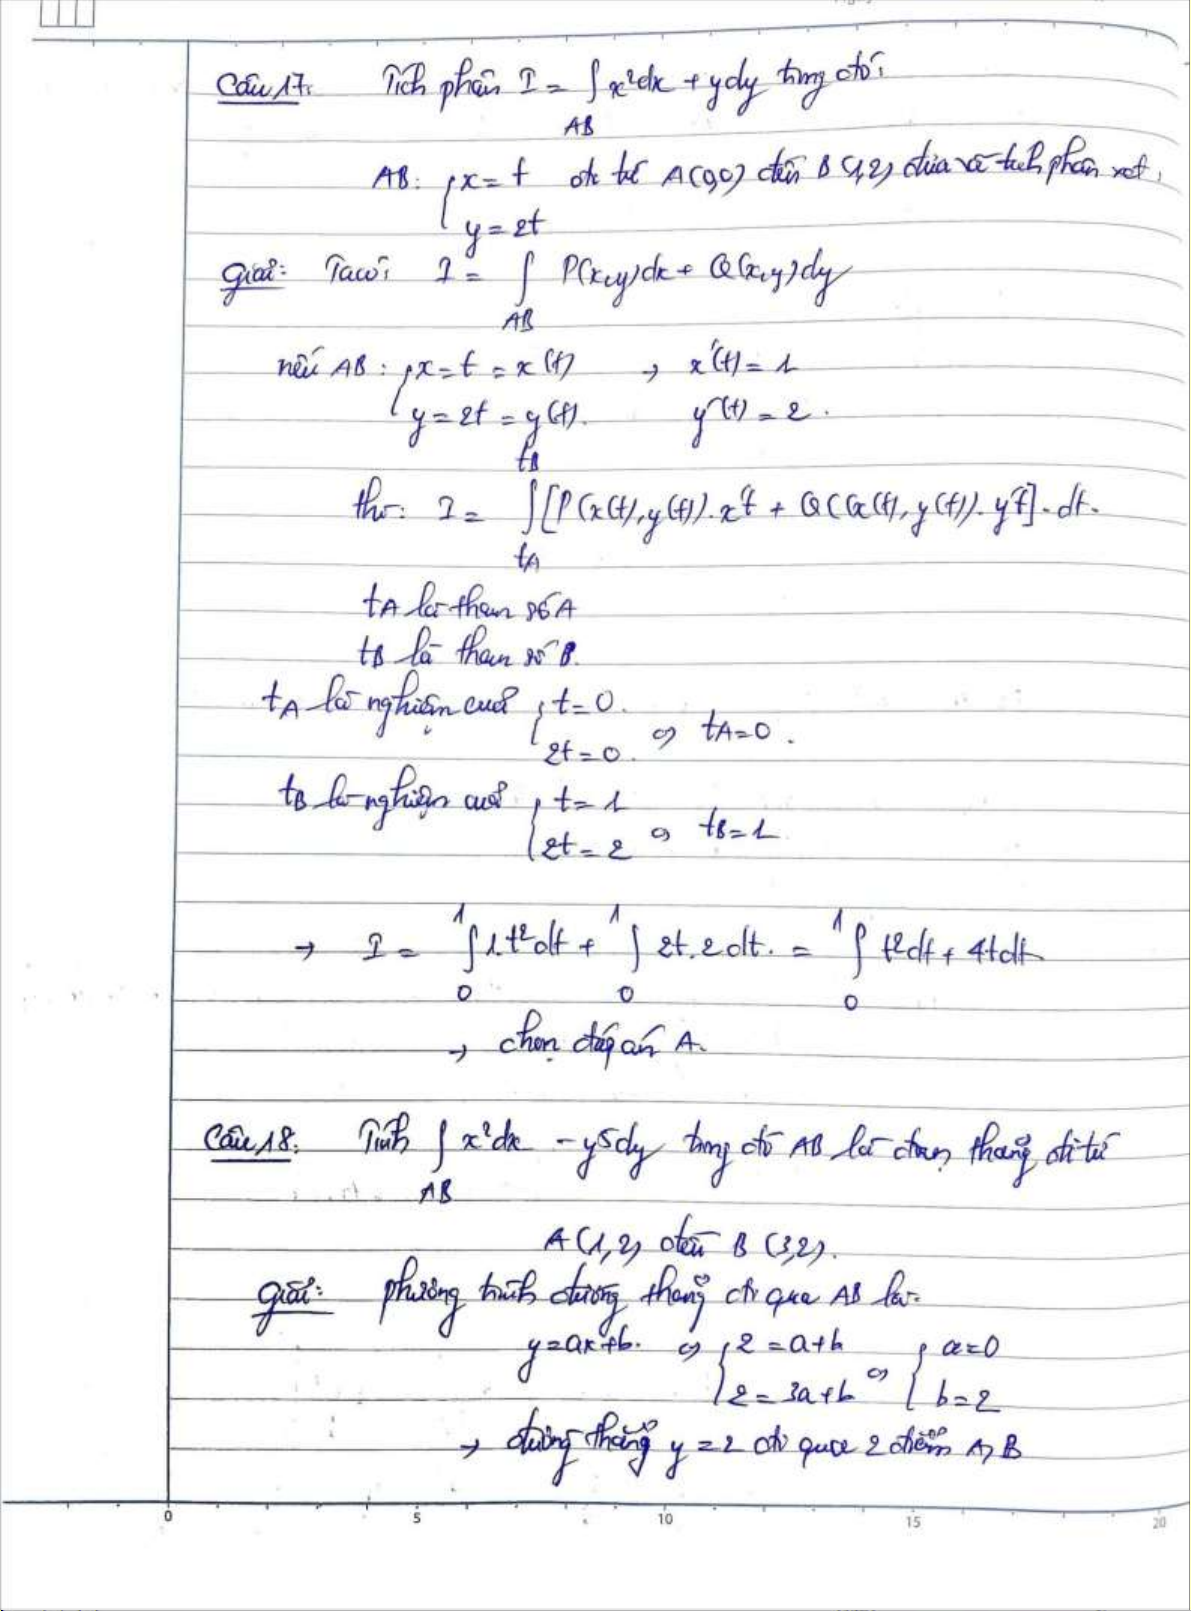 Câu 17: Tích phân I = ∫ x²dx + ydy trong đó:
AB
AB: { x = t đi từ A(0,0) đến B(1,2) đưa về tích phân xđ.
y = 2t
Giải: Ta có: I = ∫ P(x,y)dx + Q(x,y)dy
AB
nếu AB: { x = t = x(t) → x'(t) = 1
y = 2t = y(t). y'(t) = 2.
tB
thì: I = ∫ [P(x(t), y(t)).x't + Q(x(t), y(t)).y't].dt.
tA
tA là tham số A
tB là tham số B.
tA là nghiệm của { t = 0.
2t = 0. ⇔ tA = 0.
tB là nghiệm của { t = 1
2t = 2 ⇔ tB = 1
→ I = ∫₀¹ 1.t²dt + ∫₀¹ 2t.2dt. = ∫₀¹ t²dt + 4tdt
→ chọn đáp án A.
Câu 18: Tính ∫ x²dx - y5dy trong đó AB là đoạn thẳng đi từ
AB
A(1,2) đến B(3,2).
Giải: phương trình đường thẳng đi qua AB là:
y = ax + b. ⇔ { 2 = a + b ⇔ { a = 0
2 = 3a + b b = 2
→ đường thẳng y = 2 đi qua 2 điểm A, B
0 5 10 15 20